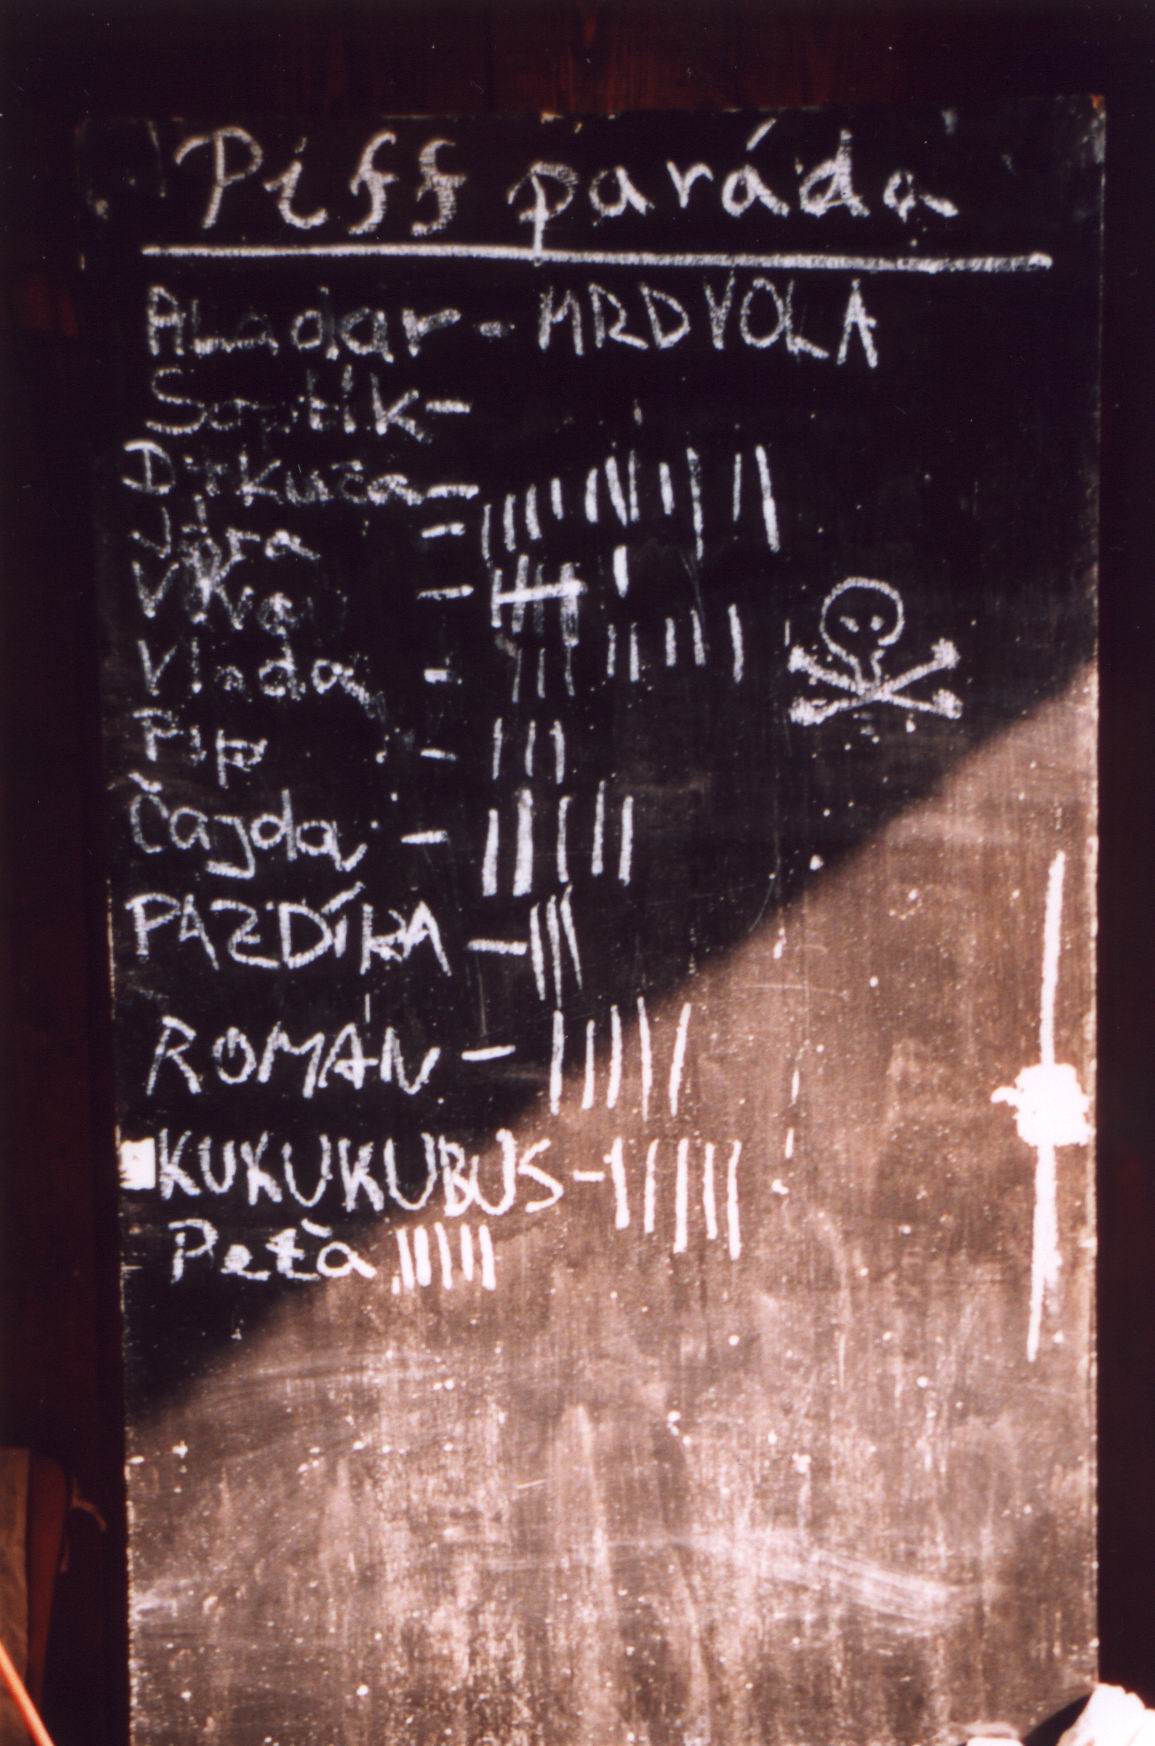 Piff paráda
Aladar - MRDVOLA
-
Drkuča -
Jára -
-
Vlada -
Pip -
Čajda -
PAZDÍRA -
ROMAN -
KUKUKUKUBUS -
Peťa